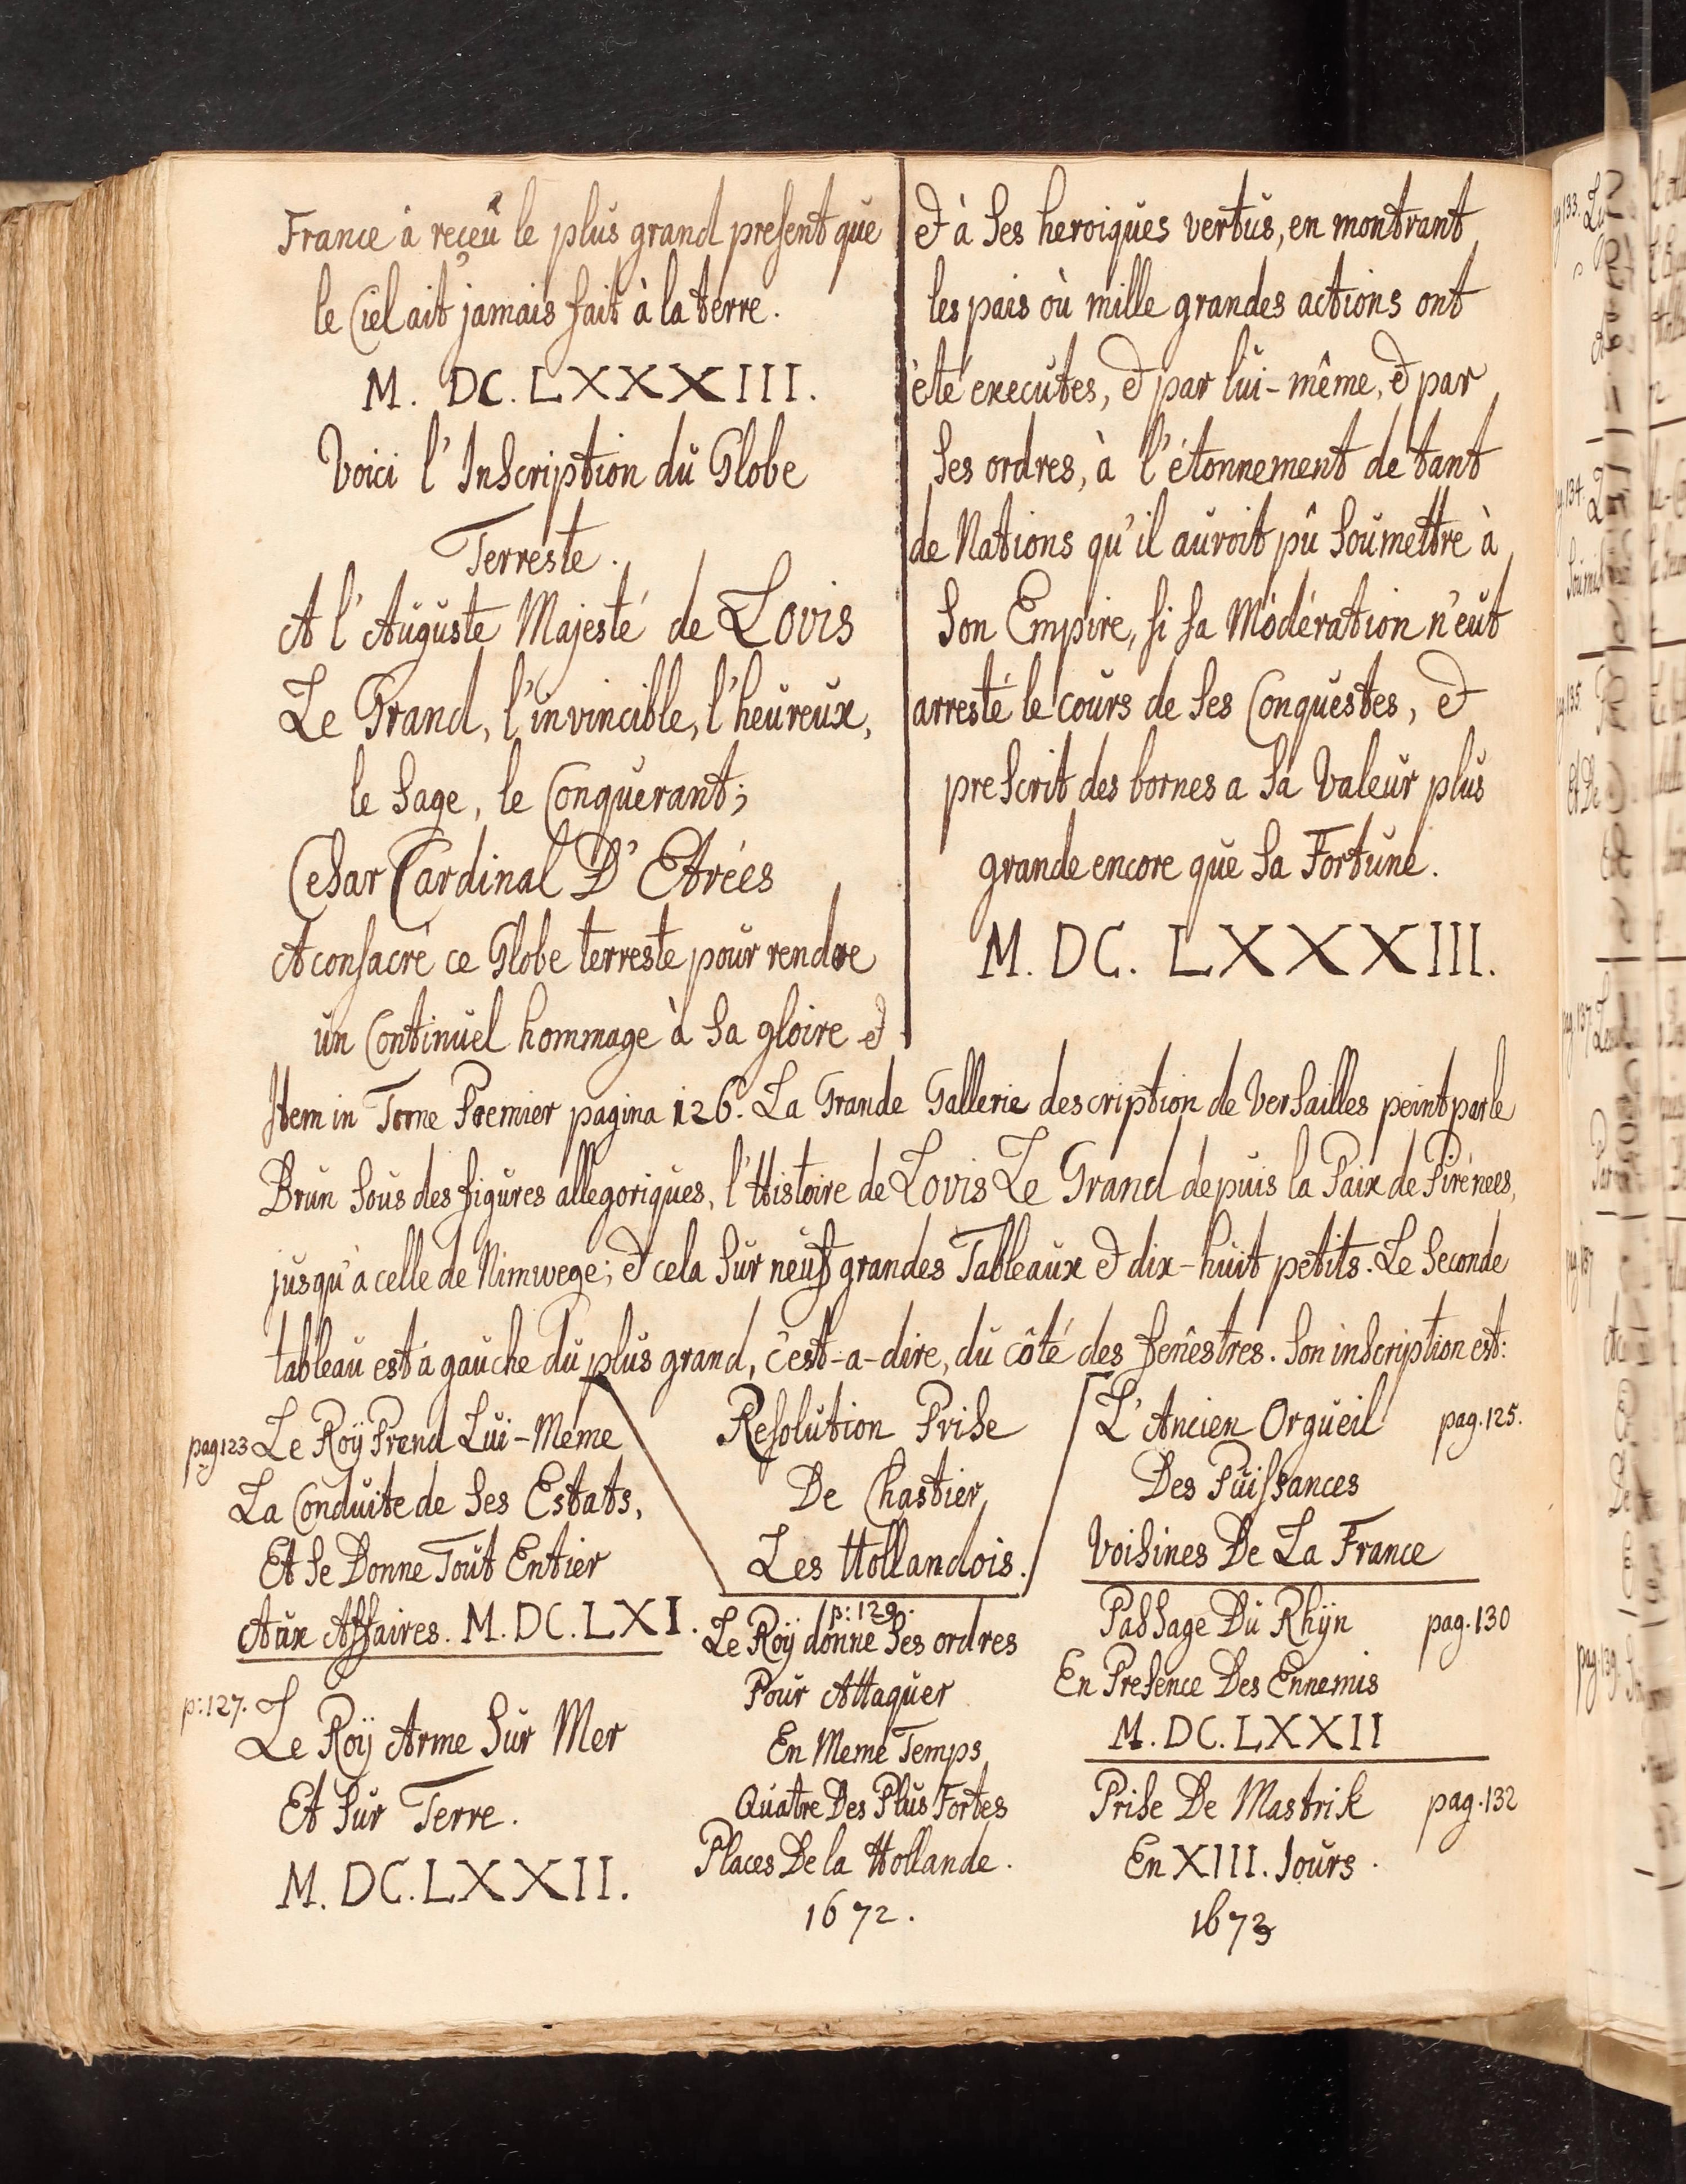 France à reçeû le plus grand present que
le Ciel ait jamais fait à la terre.
M. DC. LXXXIII.
Voici l'Inscription du Globe
Terreste.
A l'Auguste Majesté de Lovis
Le Grand, l'invincible, l'heureux,
le Sage, le Conquerant;
Cesar Cardinal D'Etrées
A consacré ce Globe terreste pour rendre
un Continuel hommage à Sa gloire et
et à Ses heroiques vertus, en montrant
les pais où mille grandes actions ont
èté executes, et par lui-même, et par
Ses ordres, à l'étonnement de tant
de Nations qu'il auroit pû Soumettre à
Son Empire, si sa Modération n'eut
arresté le cours de Ses Conquestes, et
prescrit des bornes a Sa Valeur plus
grande encore que Sa Fortune.
M. DC. LXXXIII.
Item in Tome Premier pagina 126. La Grande Gallerie description de Versailles peint par le
Brun Sous des figures allegoriques, l'Histoire de Lovis Le Grand depuis la Paix de Pirénees,
jusqu'à celle de Nimwege; et cela Sur neuf grandes Tableaux et dix-huit petits. Le Seconde
tableau est á gauche du plus grand, c'est-a-dire, du côté des fenêstres. Son inscription est:
pag 123 Le Roÿ Prend Lui-Meme
La Conduite de Ses Estats,
Et Se Donne Tout Entier
Aux Affaires. M.DC.LXI.
Resolution Prise
De Chastier
Les Hollandois.
L'Ancien Orgueil pag. 125.
Des Puissances
Voisines De La France
p: 127. Le Roÿ Arme Sur Mer
Et Sur Terre.
M. DC. LXXII.
p: 129.
Le Roÿ donne Ses ordres
Pour Attaquer
En Meme Temps
Quatre Des Plus Fortes
Places De la Hollande.
1672.
Passage Du Rhÿn pag. 130
En Presence Des Ennemis
M. DC. LXXII
Prise De Mastrik pag. 132
En XIII. Jours.
1673